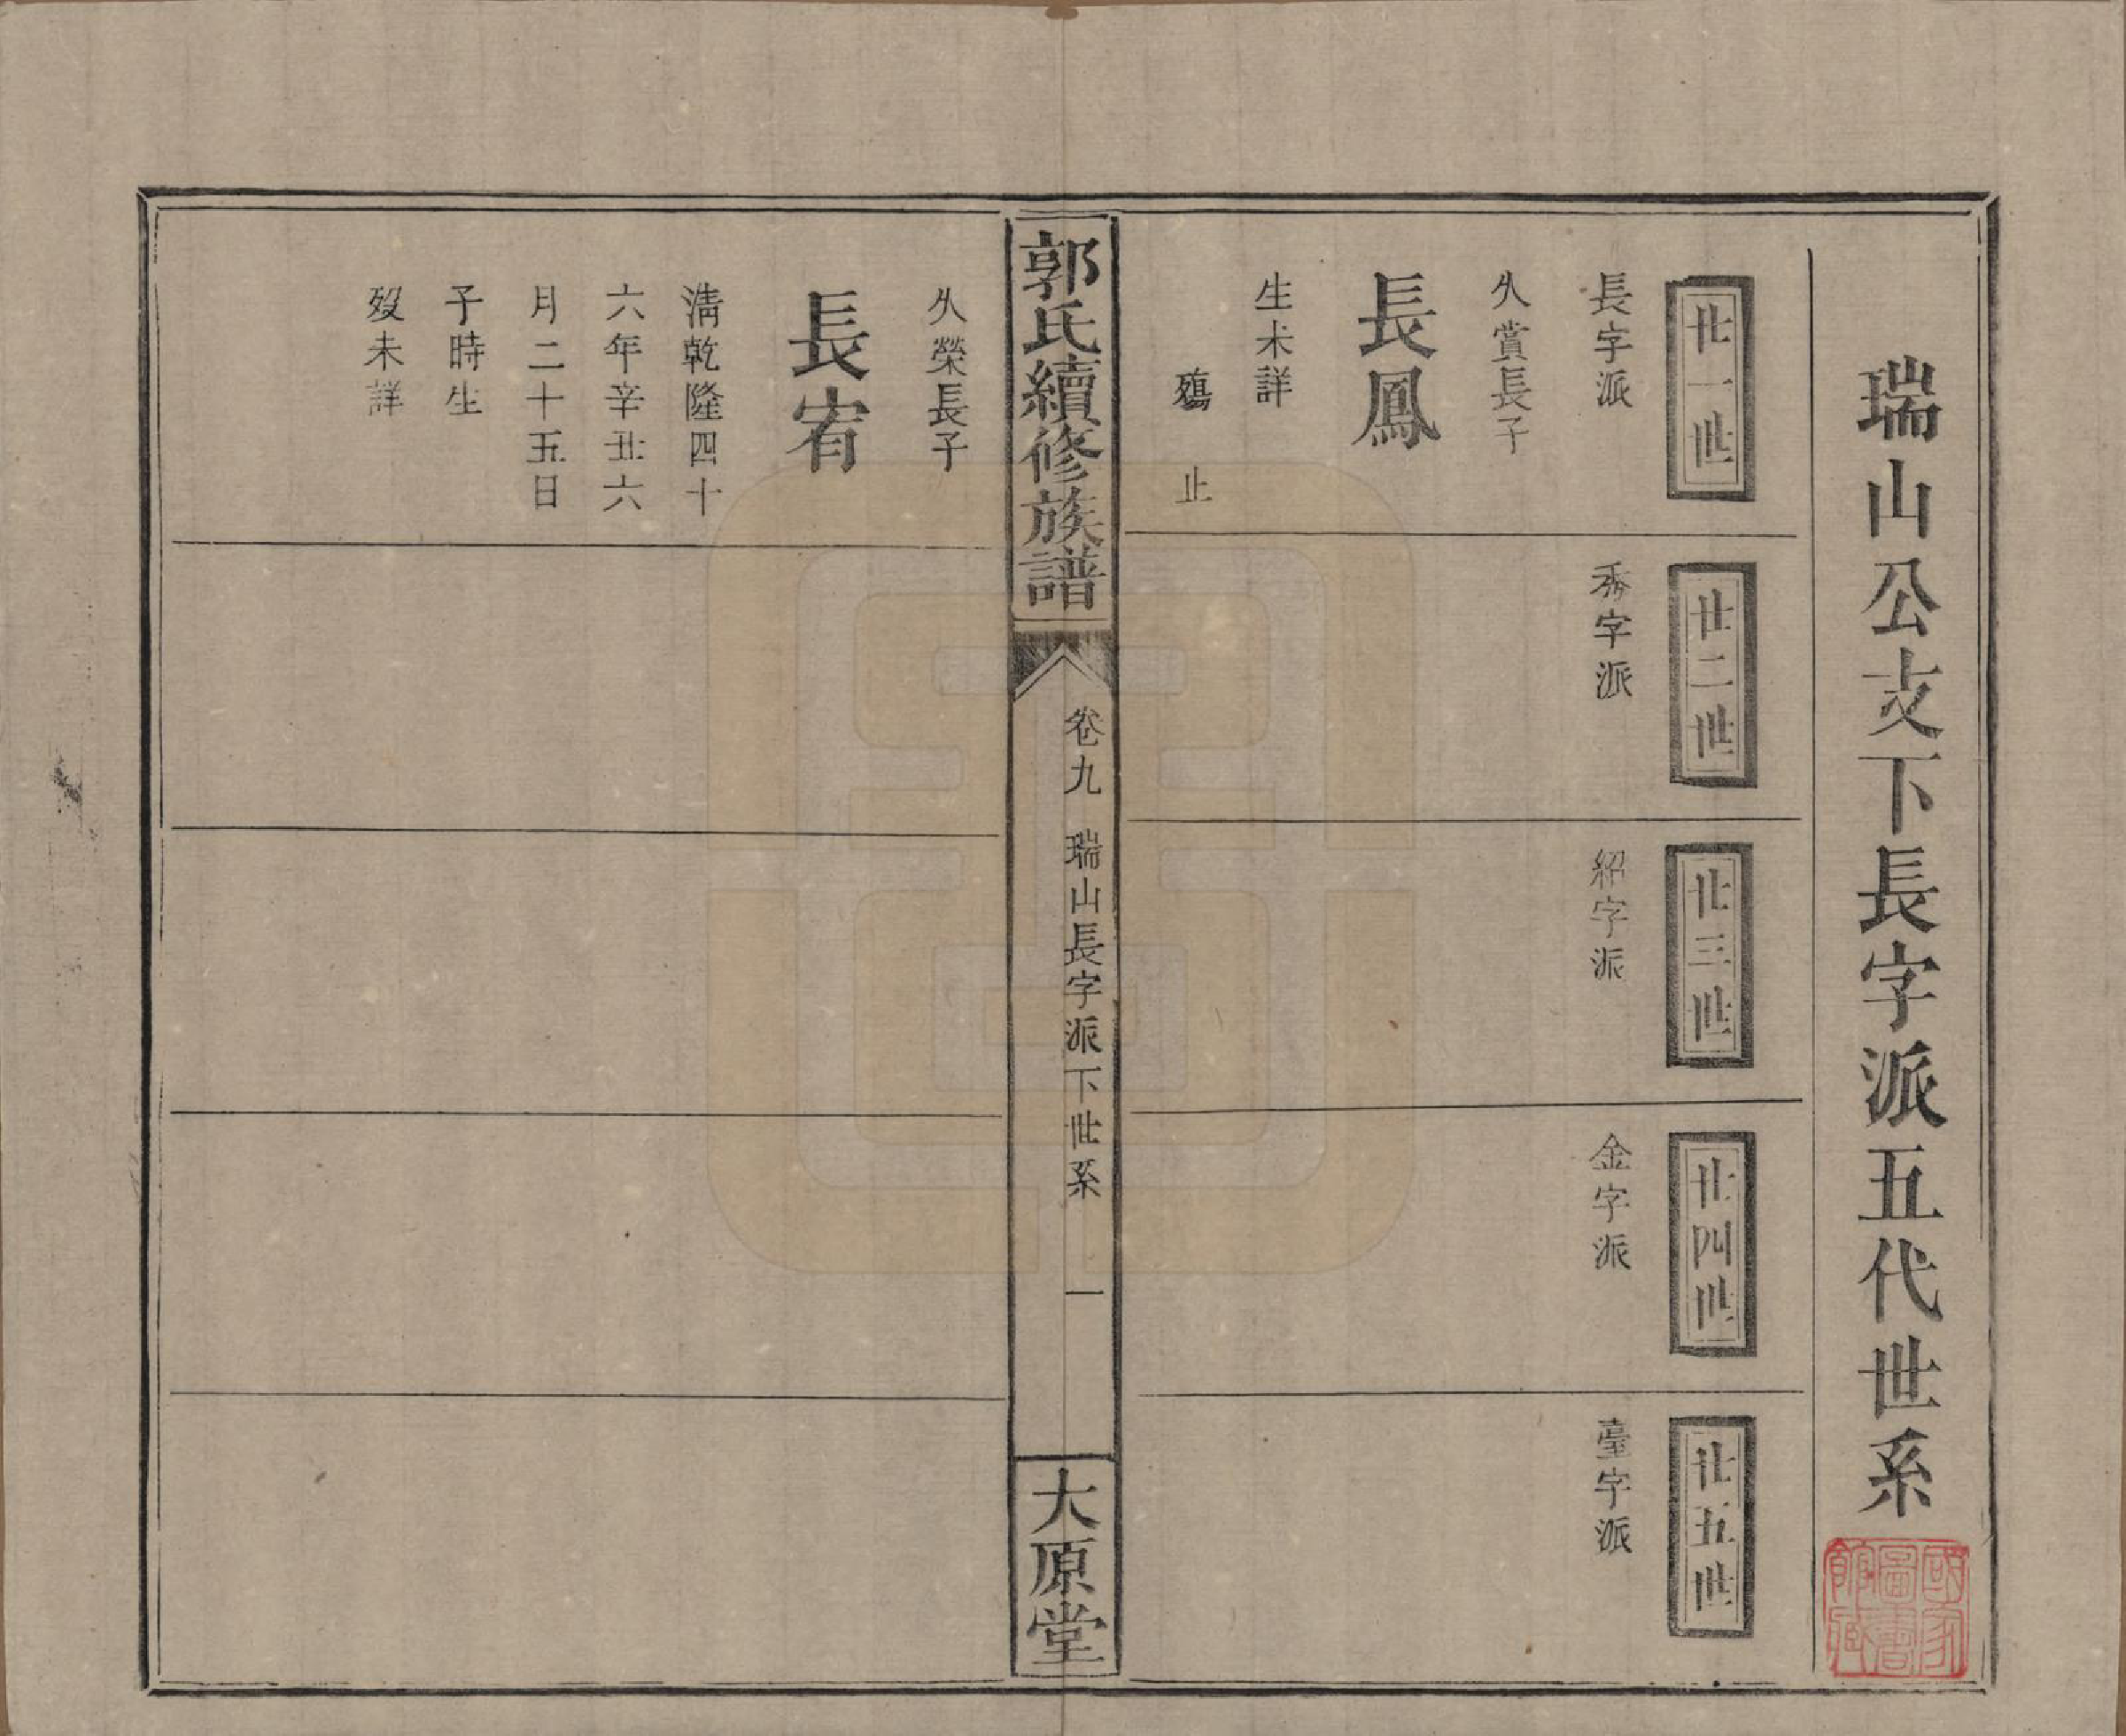 瑞山公支下長字派五代世系
廿一世
長字派
廿二世
秀字派
廿三世
紹字派
廿四世
金字派
廿五世
臺字派
久賞長子
長鳳
生未詳
殤止
郭氏續修族譜
卷九
瑞山長字派下世系
一
大原堂
久榮長子
長宥
淸乾隆四十
六年辛丑六
月二十五日
子時生
歿未詳
國家
圖書
館藏